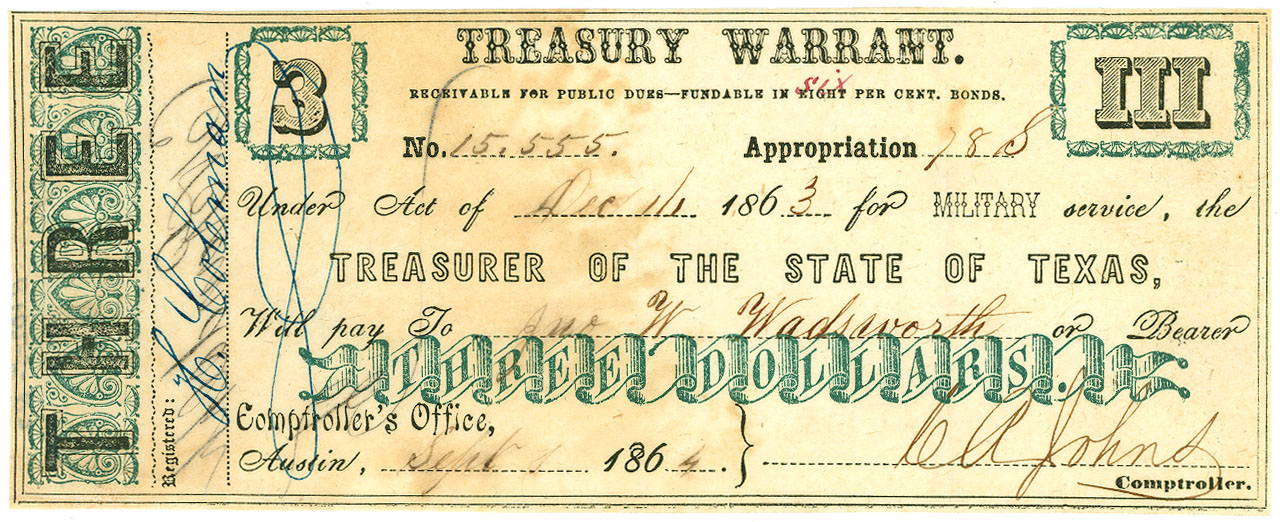 THREE
Registered:
H. Coleman
3
TREASURY WARRANT.
III
RECEIVABLE FOR PUBLIC DUES—FUNDABLE IN EIGHT six PER CENT. BONDS.
No. 15.555. Appropriation 78 8
Under Act of Dec 16 1863 for MILITARY service, the
TREASURER OF THE STATE OF TEXAS,
Will pay To Jno W Wadsworth or Bearer
THREE DOLLARS.
Comptroller's Office,
Austin, Sept 1864.
C A Johns
Comptroller.